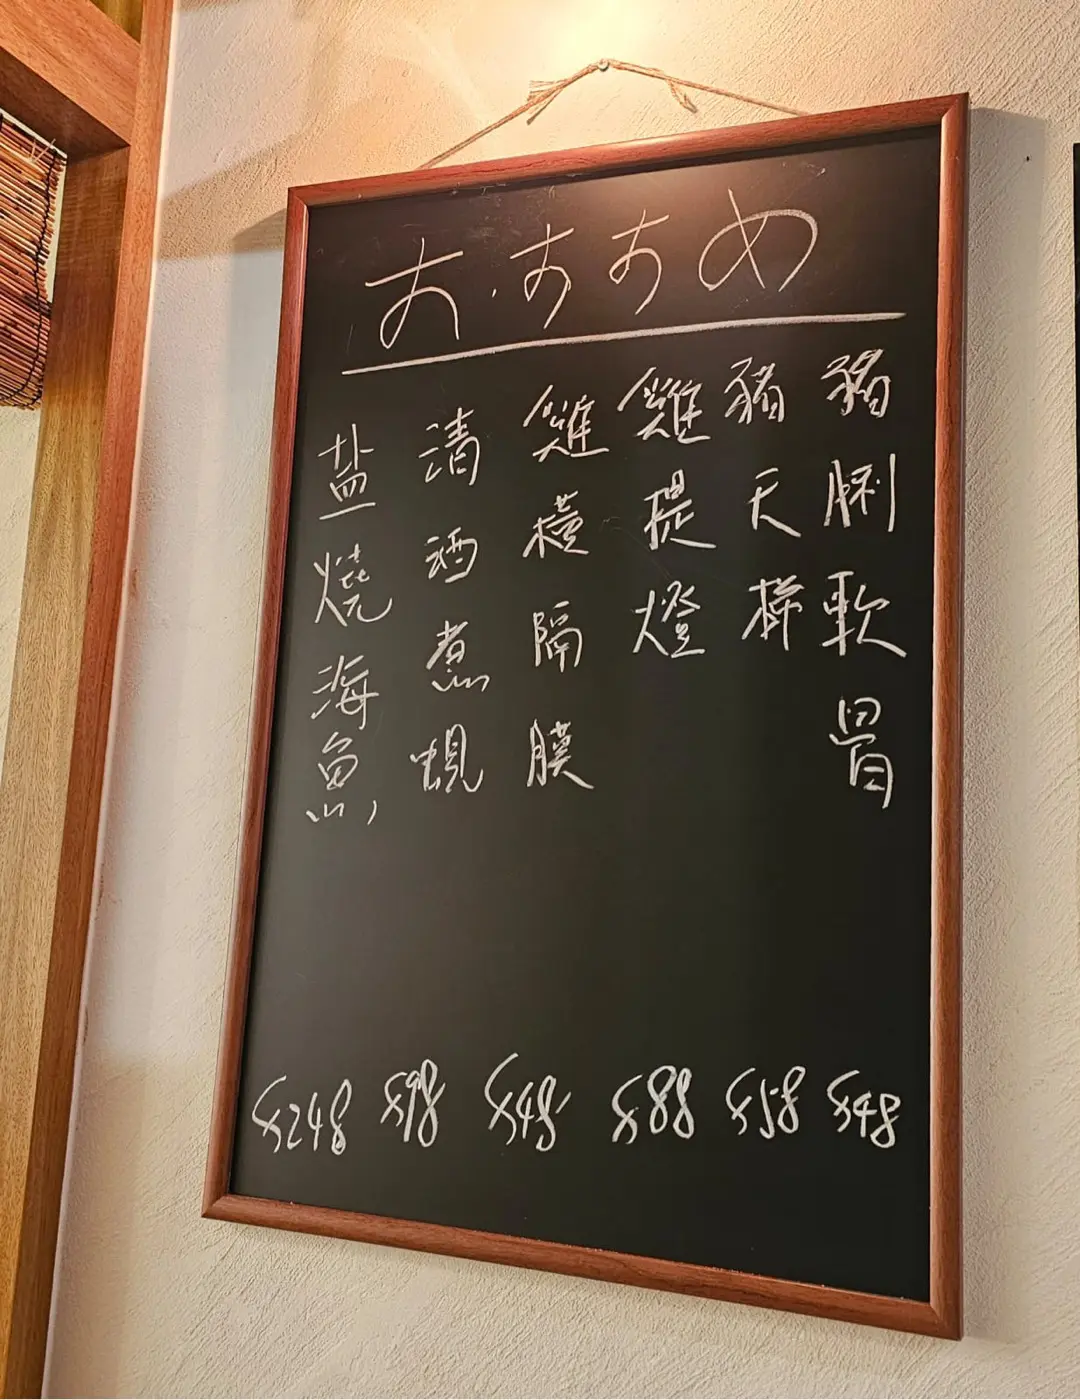 おすすめ
豬脷軟骨
豬天梯
雞提燈
雞橫隔膜
清酒煮蜆
盐燒海魚
$48
$58
$88
$48
$98
$248